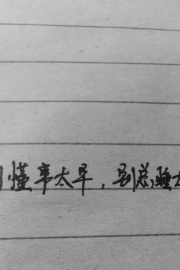 懂事太早，别总